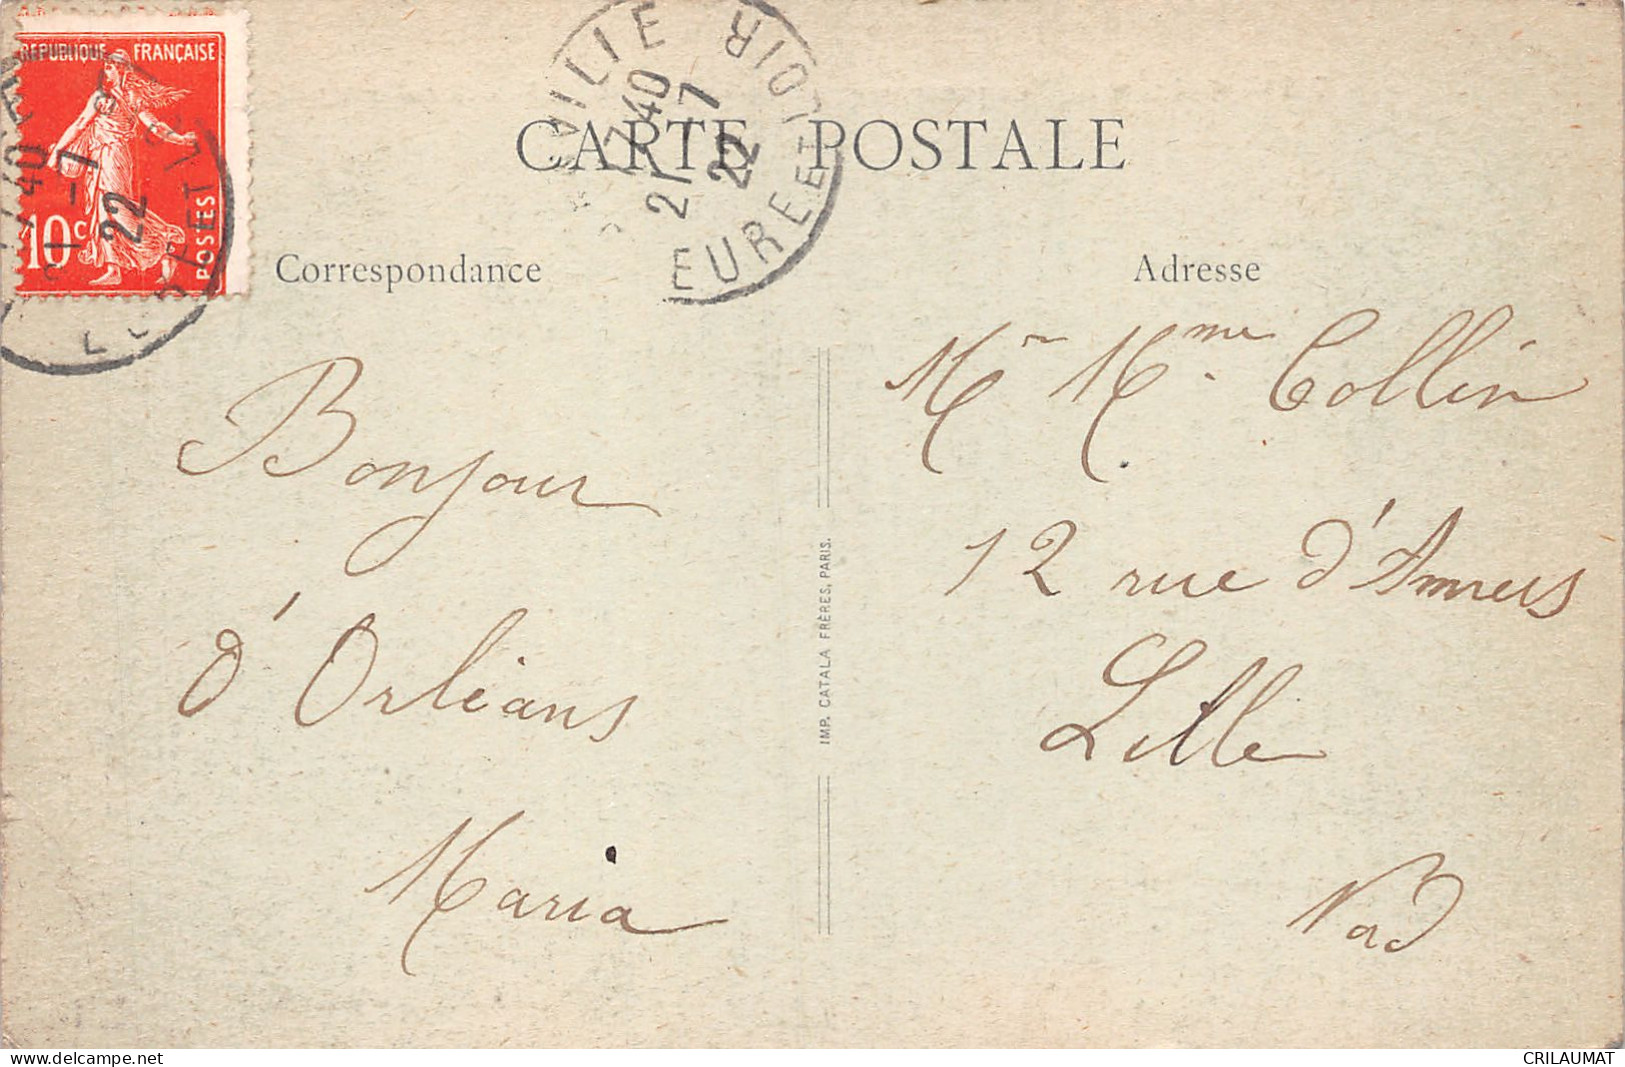 REPUBLIQUE FRANÇAISE
10c
POSTES
7 40
21 - 7
22
EURE ET LOIR
CARTE POSTALE
Correspondance
Adresse
Bonjour
d'Orléans
Maria
Mr Mme Collin
12 rue d'Anvers
Lille
Nord
IMP. CATALA FRÈRES, PARIS.
www.delcampe.net
CRILAUMAT